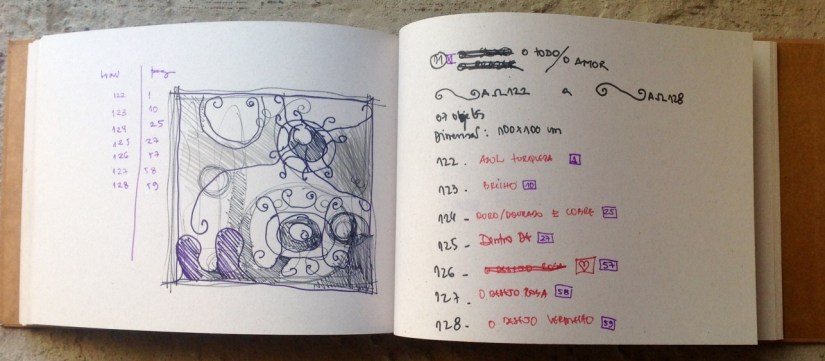 pag
122 1
123 10
124 25
125 27
126 57
127 58
128 59
O TODO/O AMOR
AΩ122 a AΩ128
07 objets
Dimensões: 100x100 cm
122. AZUL TURQUEZA 1
123. BRILHO 10
124- OURO/DOURADO E COBRE 25
125- Dentro DE 27
126- 57
127. O DESEJO ROSA 58
128. O DESEJO VERMELHO 59